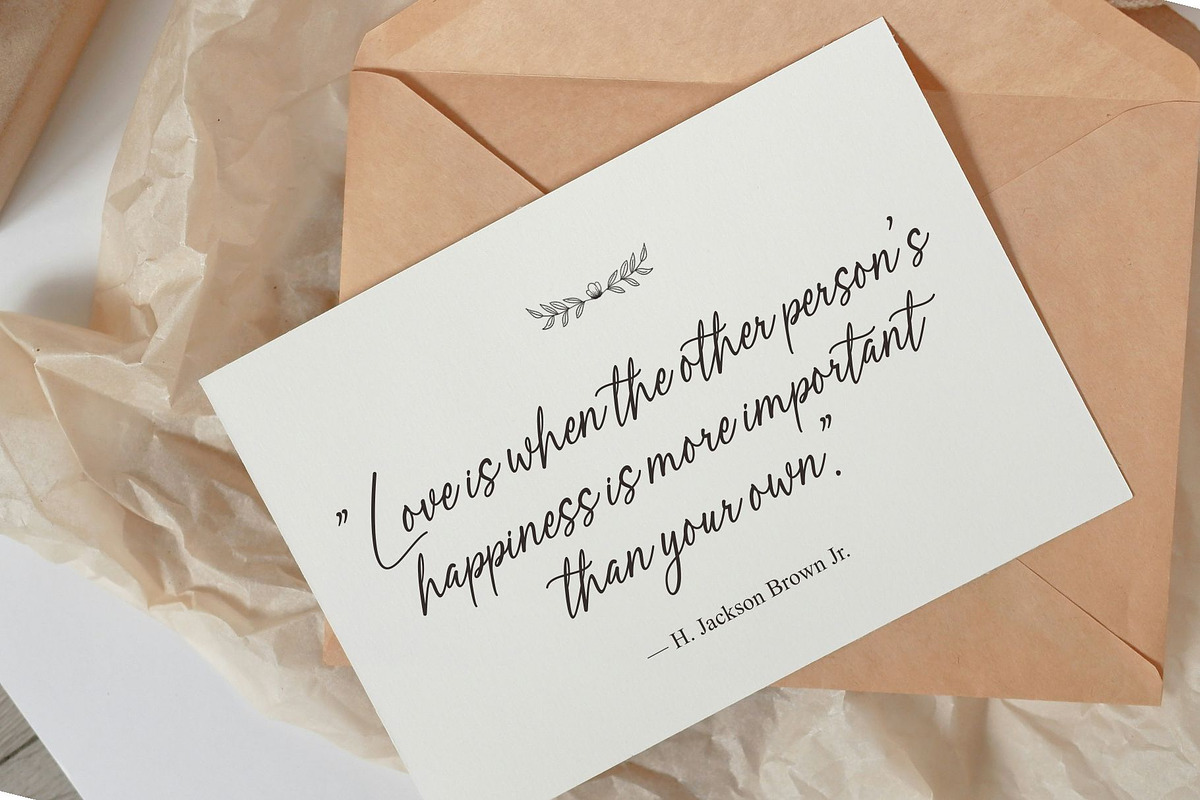 ” Love is when the other person’s
happiness is more important
than your own”.
— H. Jackson Brown Jr.